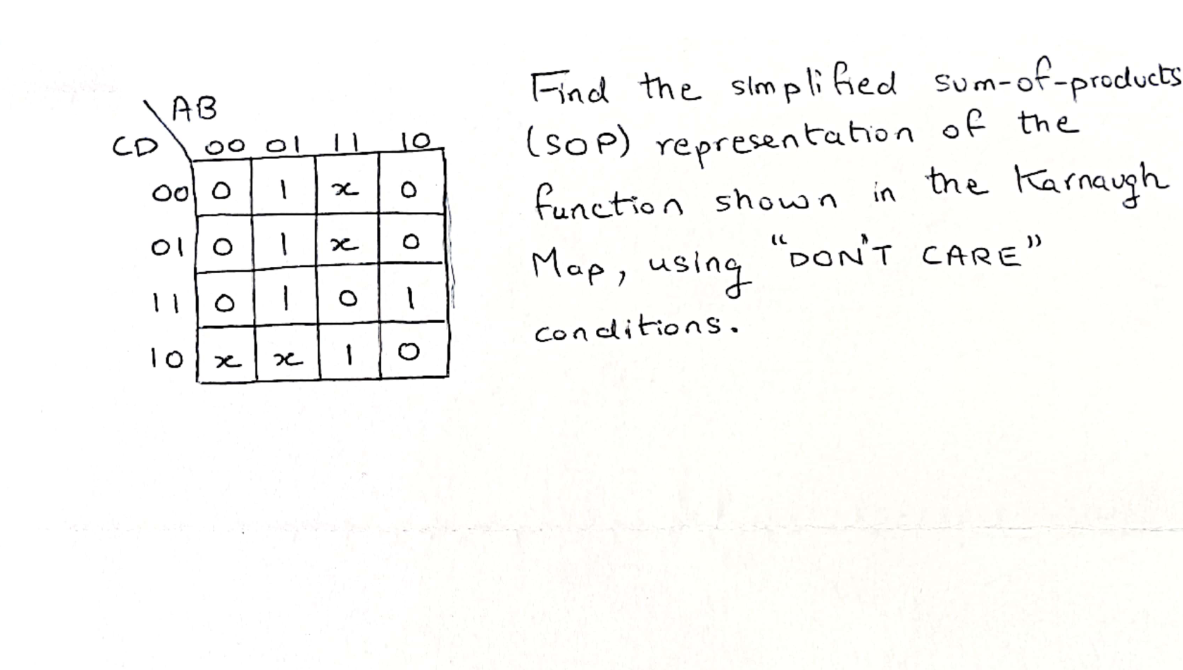 AB
CD 00 01 11 10
00 0 1 x 0
01 0 1 x 0
11 0 1 0 1
10 x x 1 0
Find the simplified sum-of-products
(SOP) representation of the
function shown in the Karnaugh
Map, using "DON'T CARE"
conditions.